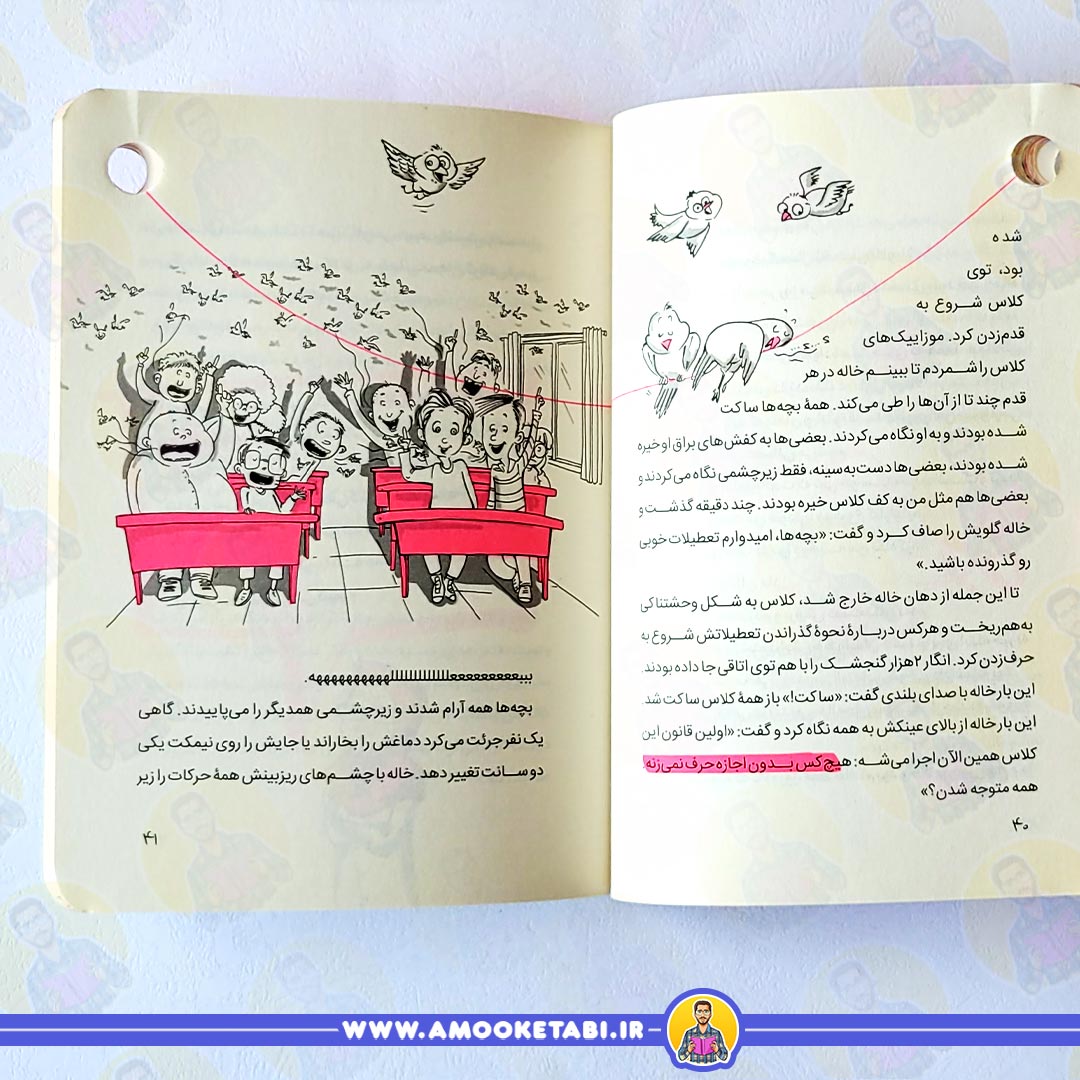 شده
بود، توی
کلاس شروع به
قدم‌زدن کرد. موزاییک‌های
کلاس را شمردم تا ببینم خاله در هر
قدم چند تا از آن‌ها را طی می‌کند. همهٔ بچه‌ها ساکت
شده بودند و به او نگاه می‌کردند. بعضی‌ها به کفش‌های براق او خیره
شده بودند، بعضی‌ها دست‌به‌سینه، فقط زیرچشمی نگاه می‌کردند و
بعضی‌ها هم مثل من به کف کلاس خیره بودند. چند دقیقه گذشت و
خاله گلویش را صاف کرد و گفت: «بچه‌ها، امیدوارم تعطیلات خوبی
رو گذرونده باشید.»
تا این جمله از دهان خاله خارج شد، کلاس به شکل وحشتناکی
به‌هم‌ریخت و هرکس دربارهٔ نحوهٔ گذراندن تعطیلاتش شروع به
حرف‌زدن کرد. انگار ۲هزار گنجشک را با هم توی اتاقی جا داده بودند.
این بار خاله با صدای بلندی گفت: «ساکت!» باز همهٔ کلاس ساکت شد.
این بار خاله از بالای عینکش به همه نگاه کرد و گفت: «اولین قانون این
کلاس همین الآن اجرا می‌شه: هیچ‌کس بدون اجازه حرف نمی‌زنه
همه متوجه شدن؟»
۴۰
بچه‌ها همه آرام شدند و زیرچشمی همدیگر را می‌پاییدند. گاهی
یک نفر جرئت می‌کرد دماغش را بخاراند یا جایش را روی نیمکت یکی
دو سانت تغییر دهد. خاله با چشم‌های ریزبینش همهٔ حرکات را زیر
۴۱
WWW.AMOOKETABI.IR